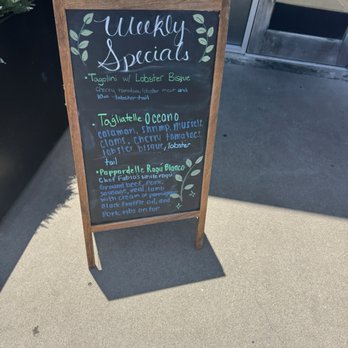 Weekly
Specials
Taglini w/ Lobster Bisque
cherry tomatoes, lobster meat and
10oz lobster tail
Tagliatelle Oceano
calamari, shrimp, mussels
clams, cherry tomatoes
lobster bisque, lobster
tail
Pappardelle Ragú Bianco
Chef Fabio's white ragú
Ground beef, Pork,
sausage, veal, lamb
with cream of parmigiano
black truffle oil, and
Pork ribs on top